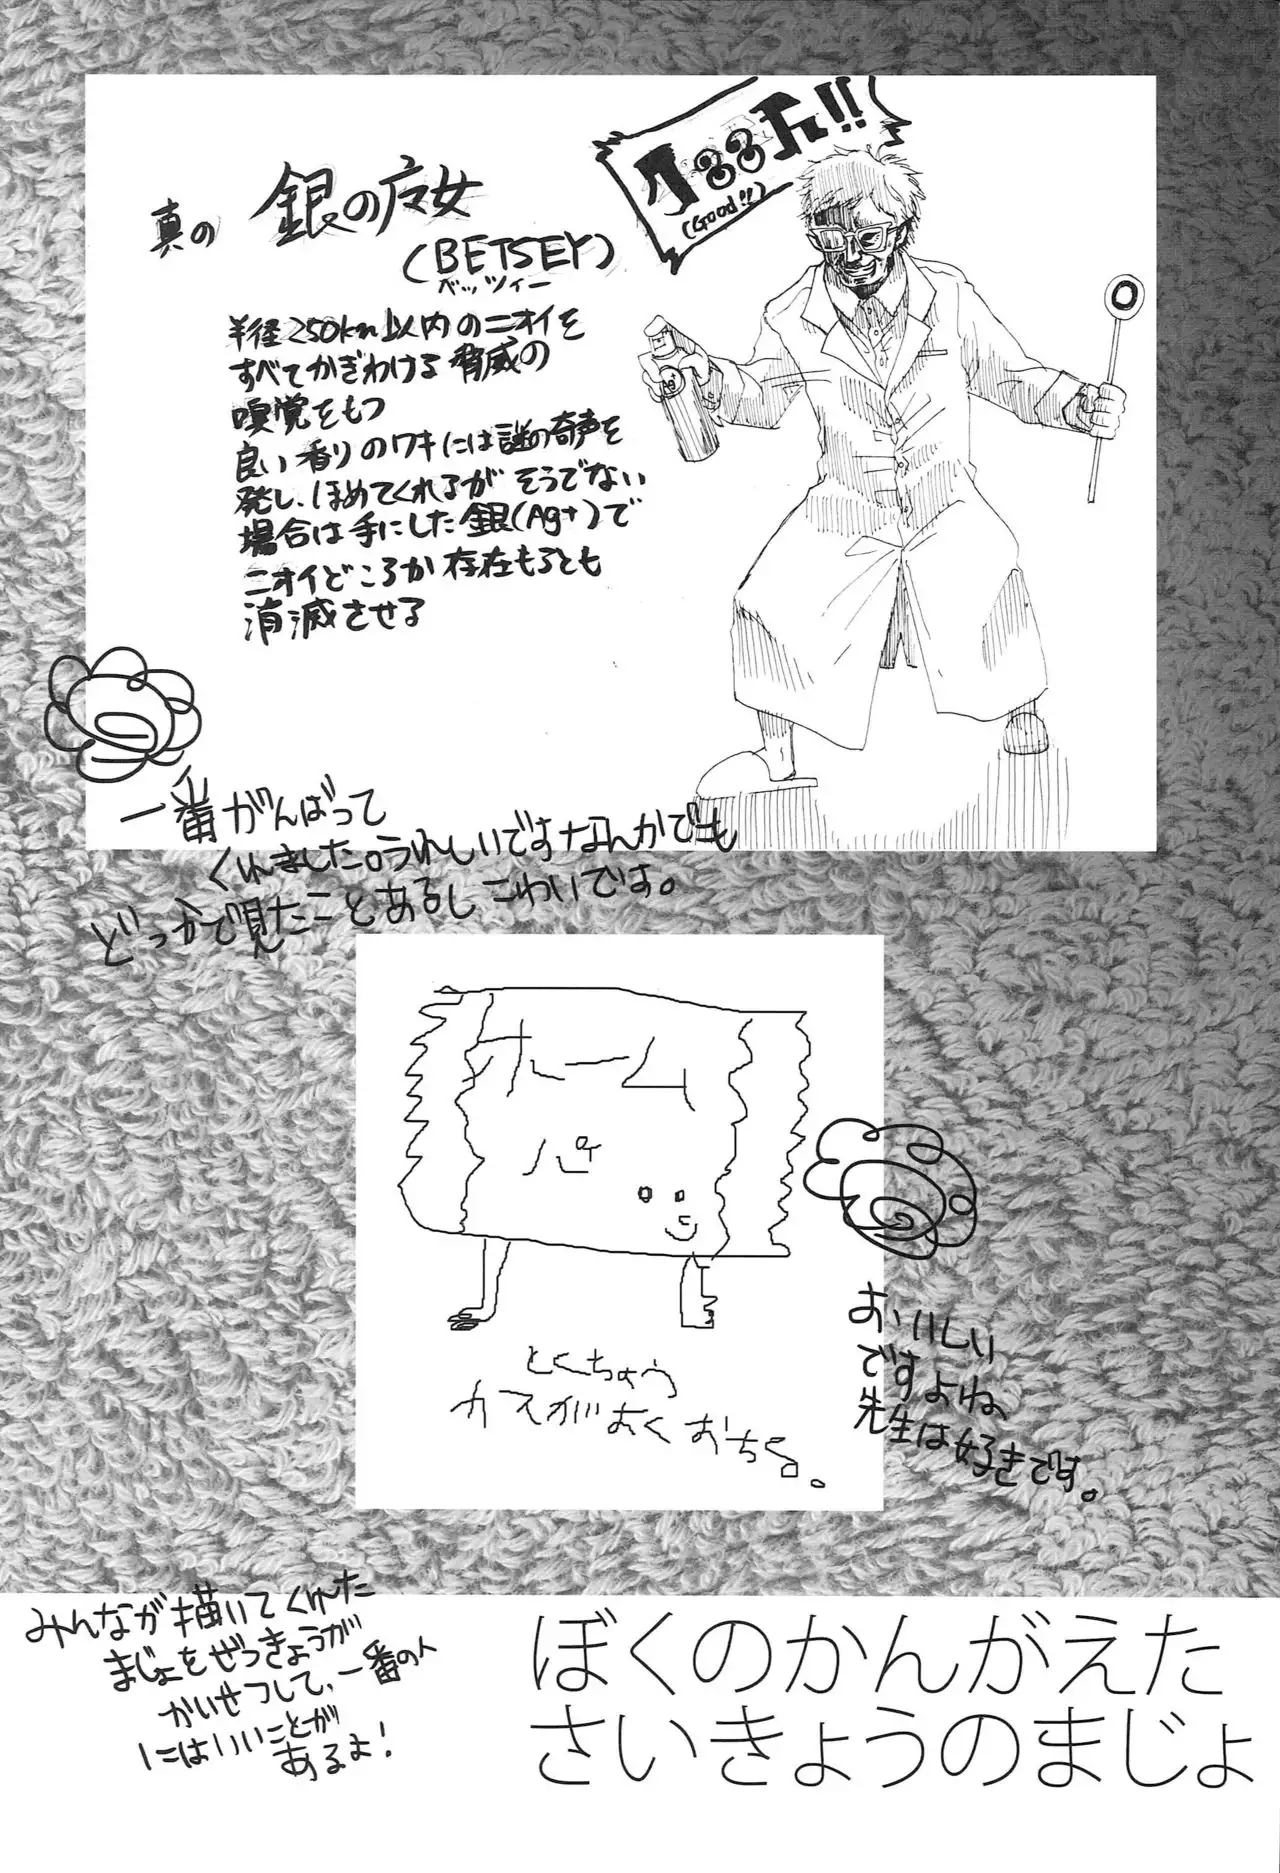 グッド!!
(Good!!)
真の 銀の魔女
(BETSEY)
ベッツィー
半径250km以内のニオイを
すべてかぎわける脅威の
嗅覚をもつ
良い香りのワキには謎の奇声を
発し、ほめてくれるがそうでない
場合は手にした銀(Ag+)で
ニオイどころか存在もろとも
消滅させる
Ag+
一番がんばって
くれました。うれしいですなんかでも
どっかで見たことあるしこわいです。
ホーム
パイ
とくちょう
カスがおくおちる。
おいしい
ですよね、
先生は好きです。
みんなが描いてくれた
まじょをぜっきょうが
かいせつして、一番の人
にはいいことが
あるよ!
ぼくのかんがえた
さいきょうのまじょ